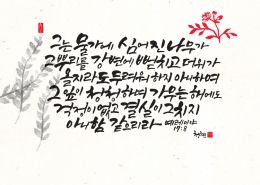 그는 물가에 심어진 나무가
그 뿌리를 강변에 뻗치고 더위가
올지라도 두려워하지 아니하며
그 잎이 청청하며 가무는 해에도
걱정이 없고 결실이 그치지
아니함 같으리라 예레미야
17:8